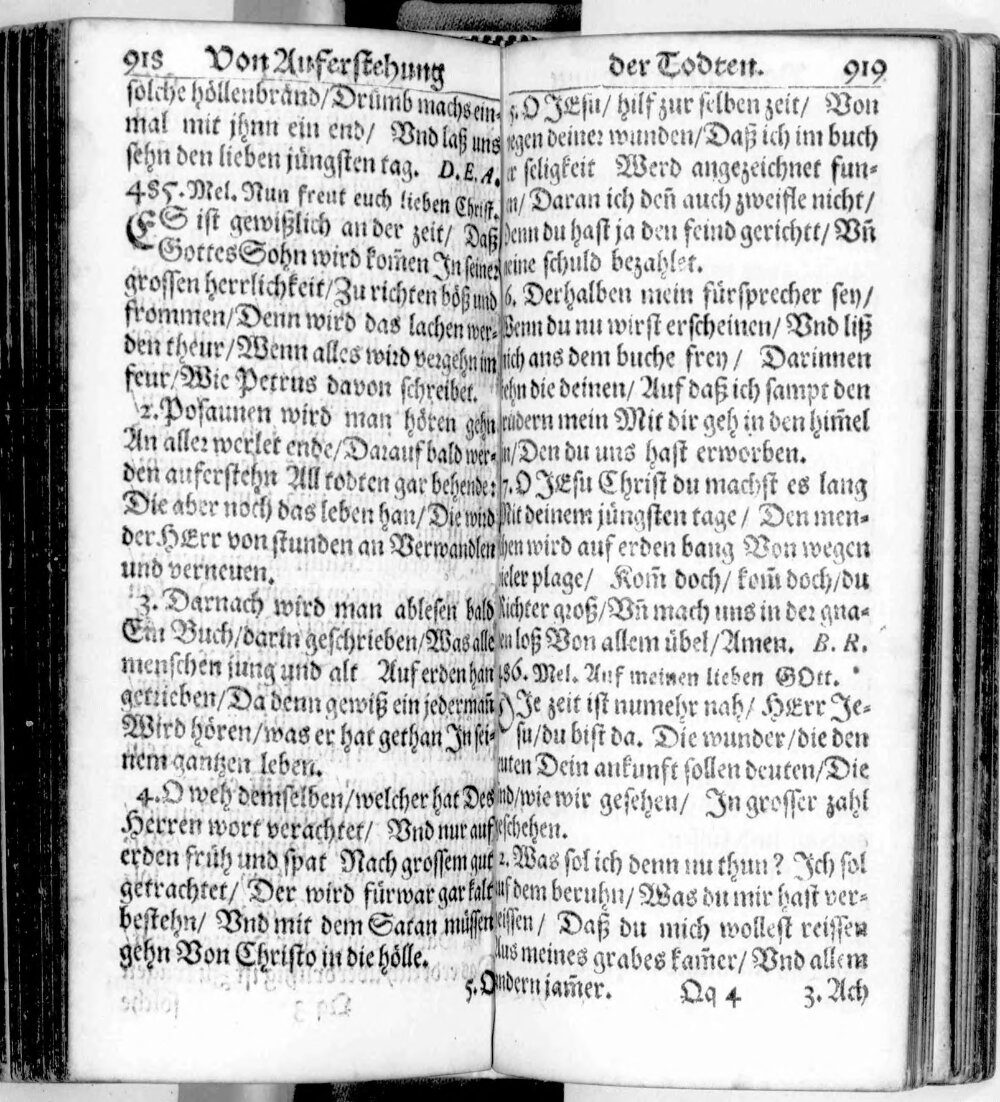 918 Von Auferstehung
solche höllenbränd/Drümb machs ein-
mal mit jhnn ein end/ Vnd laß uns
sehn den lieben jüngsten tag. D. E. A.
485. Mel. Nun freut euch lieben Christ.
ES ist gewißlich an der zeit/ Daß
Gottes Sohn wird kom̄en In seiner
grossen herrlichkeit/Zu richten böß und
frommen/Denn wird das lachen wer-
den theur/Wenn alles wird vergehn im
feur/Wie Petrus davon schreibet.
2. Posaunen wird man hören gehn
An aller werlet ende/Darauf bald wer-
den auferstehn All todten gar behende:
Die aber noch das leben han/Die wird
der HErr von stunden an Verwandlen
und verneuen.
3. Darnach wird man ablesen bald
Ein Buch/darin geschrieben/Was alle
menschen jung und alt Auf erden han
getrieben/Da denn gewiß ein jederman̄
Wird hören/was er hat gethan In sei-
nem gantzen leben.
4. O weh demselben/welcher hat Des
Herren wort verachtet/ Vnd nur auf
erden früh und spat Nach grossem gut
getrachtet/ Der wird fürwar gar kalt
bestehn/ Vnd mit dem Satan müssen
gehn Von Christo in die hölle.
5. O
der Todten. 919
5. O JEsu/ hilf zur selben zeit/ Von
egen deiner wunden/Daß ich im buch
r seligkeit Werd angezeichnet fun-
n/Daran ich den̄ auch zweifle nicht/
Denn du hast ja den feind gerichtt/ Vn̄
eine schuld bezahlet.
6. Derhalben mein fürsprecher sey/
Wenn du nu wirst erscheinen/ Vnd ließ
ich aus dem buche frey/ Darinnen
ehn die deinen/ Auf daß ich sampt den
rüdern mein Mit dir geh in den him̄el
n/Den du uns hast erworben.
7. O JEsu Christ du machst es lang
Mit deinem jüngsten tage/ Den men-
chen wird auf erden bang Von wegen
ieler plage/ Kom̄ doch/ kom̄ doch/du
Richter groß/ Vn̄ mach uns in der gna-
en loß Von allem übel/Amen. B. R.
486. Mel. Auf meinen lieben GOtt.
DJe zeit ist numehr nah/ HErr Je-
su/du bist da. Die wunder/die den
uten Dein ankunft sollen deuten/Die
nd/wie wir gesehen/ In grosser zahl
eschehen.
2. Was sol ich denn nu thun? Ich sol
uf dem beruhn/Was du mir hast ver-
eissen/ Daß du mich wollest reissen
Aus meines grabes kam̄er/ Vnd allem
ndern jam̄er. Qq 4 3. Ach